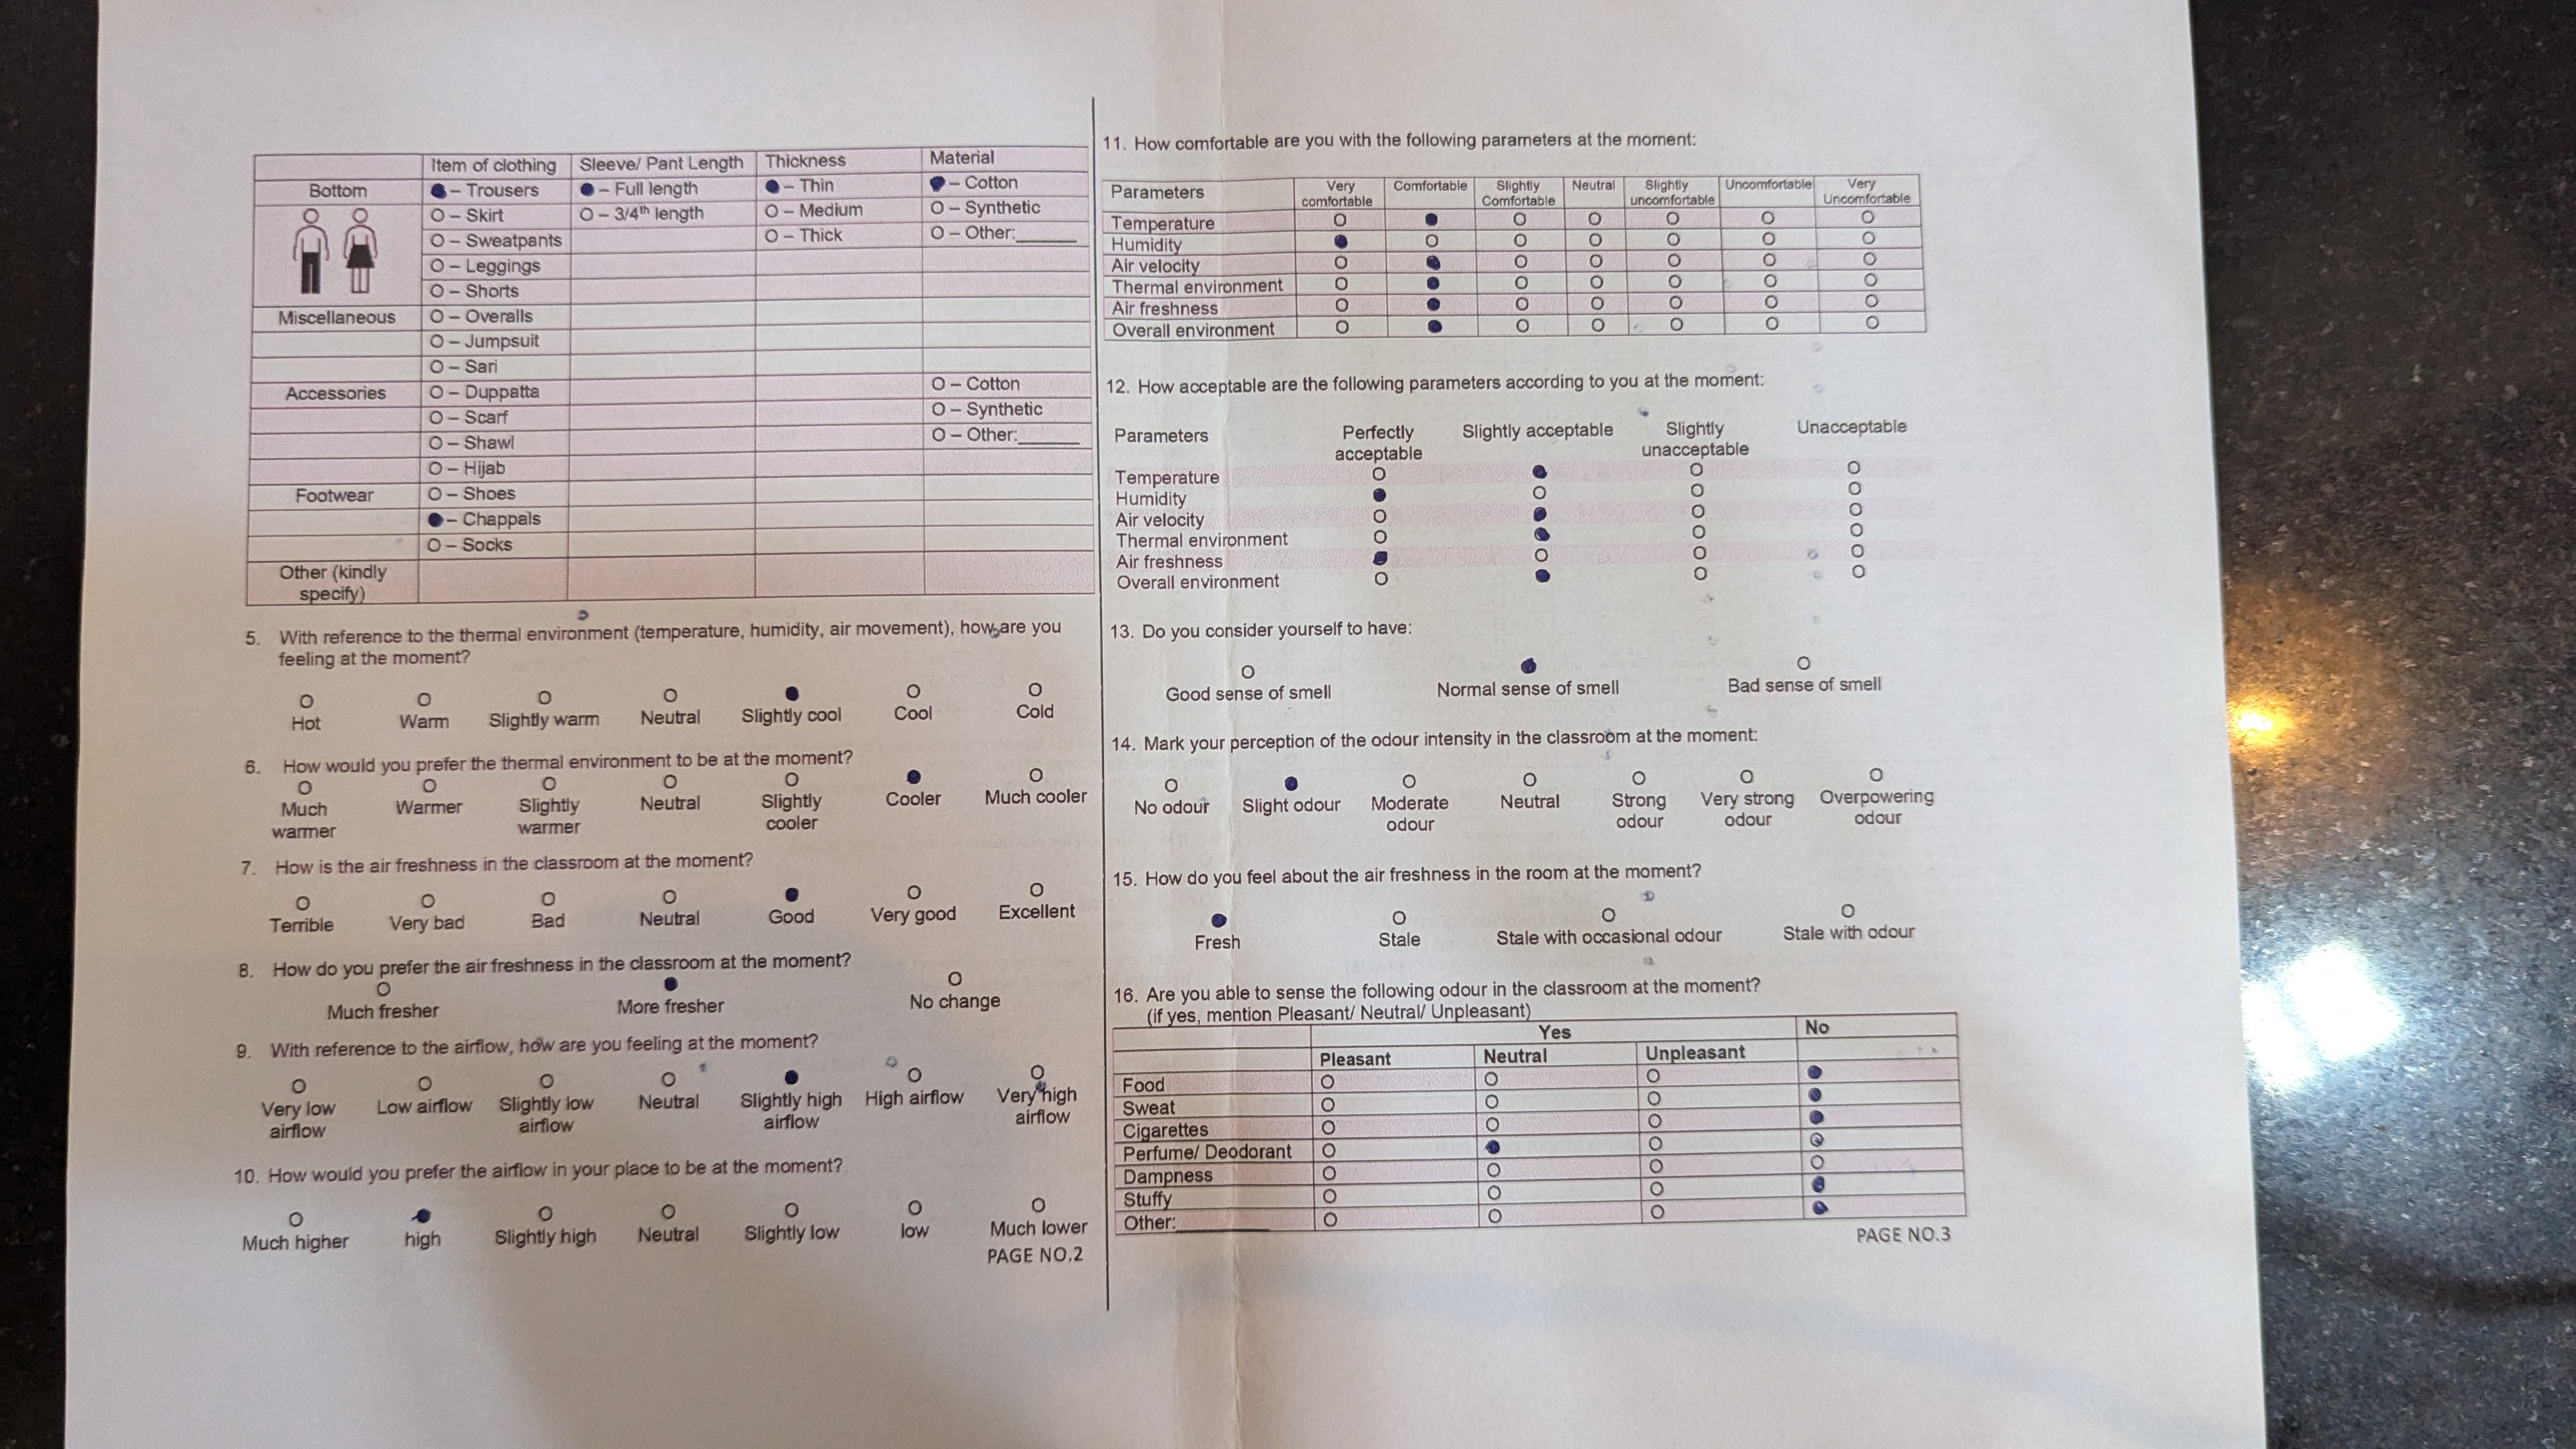 Item of clothing Sleeve/ Pant Length Thickness Material
Bottom ● – Trousers ● – Full length ● – Thin ● – Cotton
O – Skirt O – 3/4th length O – Medium O – Synthetic
O – Sweatpants O – Thick O – Other:______
O – Leggings
O – Shorts
Miscellaneous O – Overalls
O – Jumpsuit
O – Sari
Accessories O – Duppatta O – Cotton
O – Scarf O – Synthetic
O – Shawl O – Other:______
O – Hijab
Footwear O – Shoes
● – Chappals
O – Socks
Other (kindly
specify)
5. With reference to the thermal environment (temperature, humidity, air movement), how are you
feeling at the moment?
O O O O ● O O
Hot Warm Slightly warm Neutral Slightly cool Cool Cold
6. How would you prefer the thermal environment to be at the moment?
O O O O O ● O
Much Warmer Slightly Neutral Slightly Cooler Much cooler
warmer warmer cooler
7. How is the air freshness in the classroom at the moment?
O O O O ● O O
Terrible Very bad Bad Neutral Good Very good Excellent
8. How do you prefer the air freshness in the classroom at the moment?
O ● O
Much fresher More fresher No change
9. With reference to the airflow, how are you feeling at the moment?
O O O O ● O O
Very low Low airflow Slightly low Neutral Slightly high High airflow Very high
airflow airflow airflow airflow
10. How would you prefer the airflow in your place to be at the moment?
O ● O O O O O
Much higher high Slightly high Neutral Slightly low low Much lower
PAGE NO.2
11. How comfortable are you with the following parameters at the moment:
Parameters Very Comfortable Slightly Neutral Slightly Uncomfortable Very
comfortable Comfortable uncomfortable Uncomfortable
Temperature O ● O O O O O
Humidity ● O O O O O O
Air velocity O ● O O O O O
Thermal environment O ● O O O O O
Air freshness O ● O O O O O
Overall environment O ● O O O O O
12. How acceptable are the following parameters according to you at the moment:
Parameters Perfectly Slightly acceptable Slightly Unacceptable
acceptable unacceptable
Temperature O ● O O
Humidity ● O O O
Air velocity O ● O O
Thermal environment O ● O O
Air freshness ● O O O
Overall environment O ● O O
13. Do you consider yourself to have:
O ● O
Good sense of smell Normal sense of smell Bad sense of smell
14. Mark your perception of the odour intensity in the classroom at the moment:
O ● O O O O O
No odour Slight odour Moderate Neutral Strong Very strong Overpowering
odour odour odour odour
15. How do you feel about the air freshness in the room at the moment?
● O O O
Fresh Stale Stale with occasional odour Stale with odour
16. Are you able to sense the following odour in the classroom at the moment?
(if yes, mention Pleasant/ Neutral/ Unpleasant)
Yes No
Pleasant Neutral Unpleasant
Food O O O ●
Sweat O O O ●
Cigarettes O O O ●
Perfume/ Deodorant O ● O O
Dampness O O O O
Stuffy O O O ●
Other:________ O O O ●
PAGE NO.3